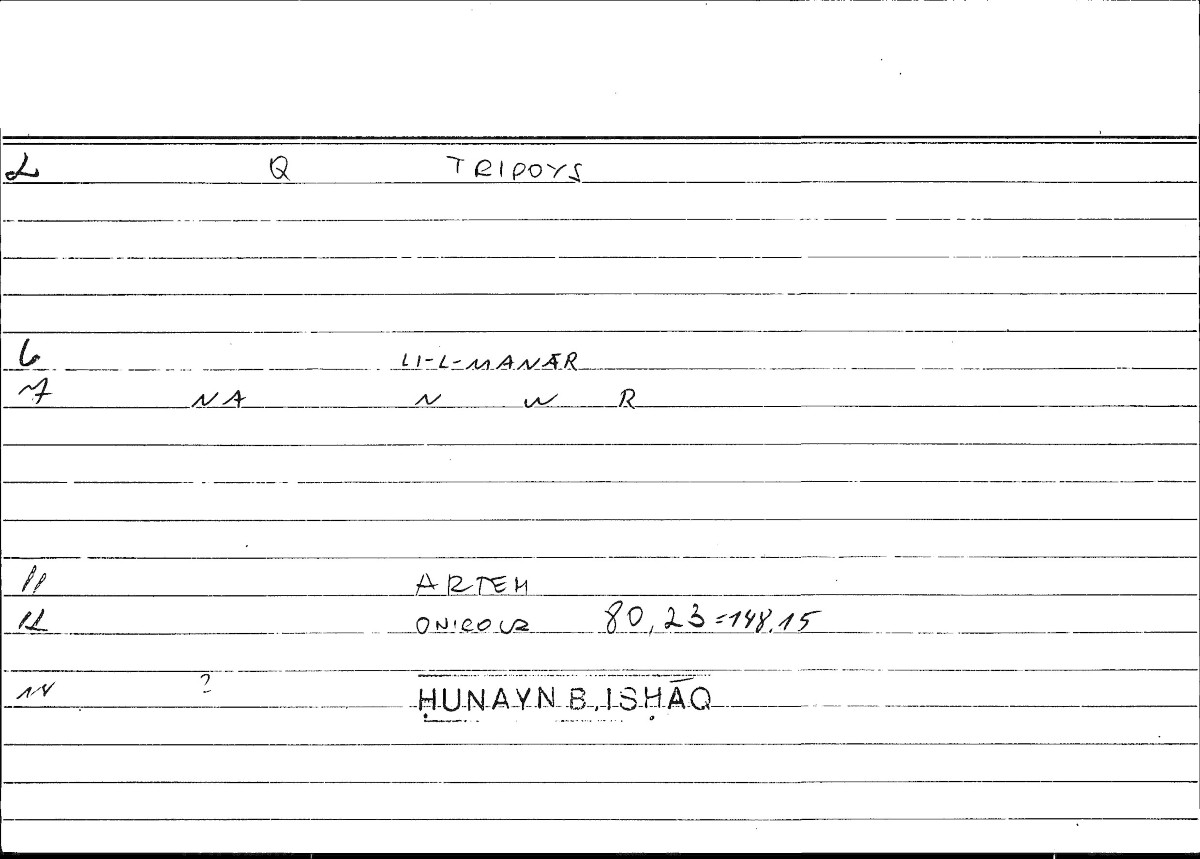 2 Q TRIPOYS
6 LI-L-MANĀR
7 NA N W R
11 ARTEM
12 ONIROCR 80,23=148.15
14 ? ḤUNAYN B. ISḤĀQ